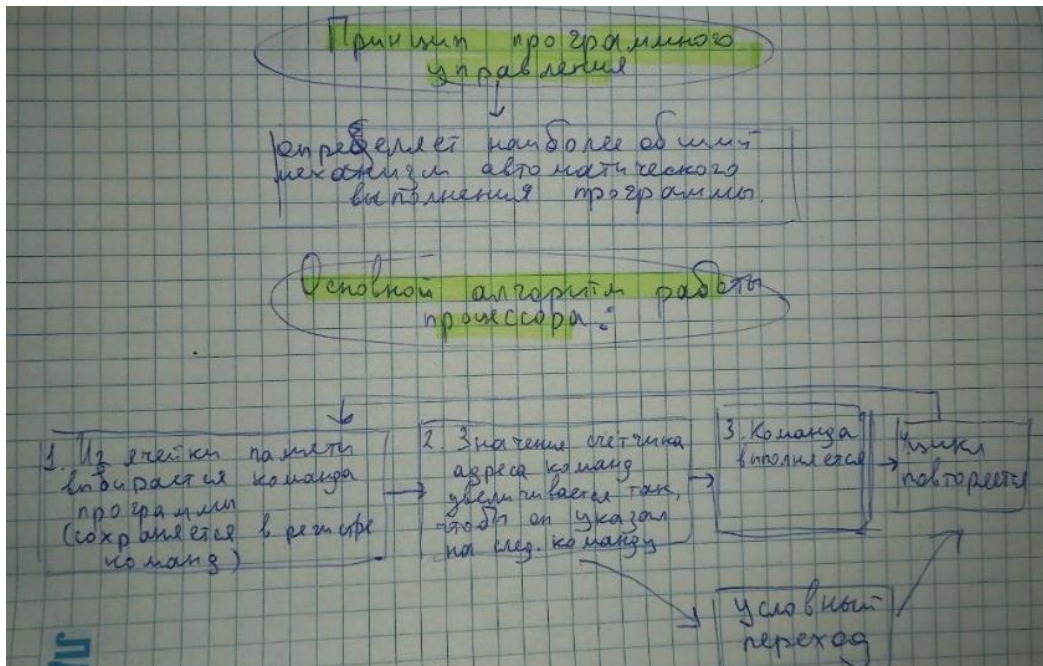 Принцип программного
управления
определяет наиболее общий
механизм автоматического
выполнения программы.
Основной алгоритм работы
процессора:
1. Из ячейки памяти
выбирается команда
программы
(сохраняется в регистре
команд)
2. Значения счётчика
адреса команд
увеличивается так,
чтобы он указал
на след. команду
3. Команда
выполняется
Цикл
повторяется
условный
переход